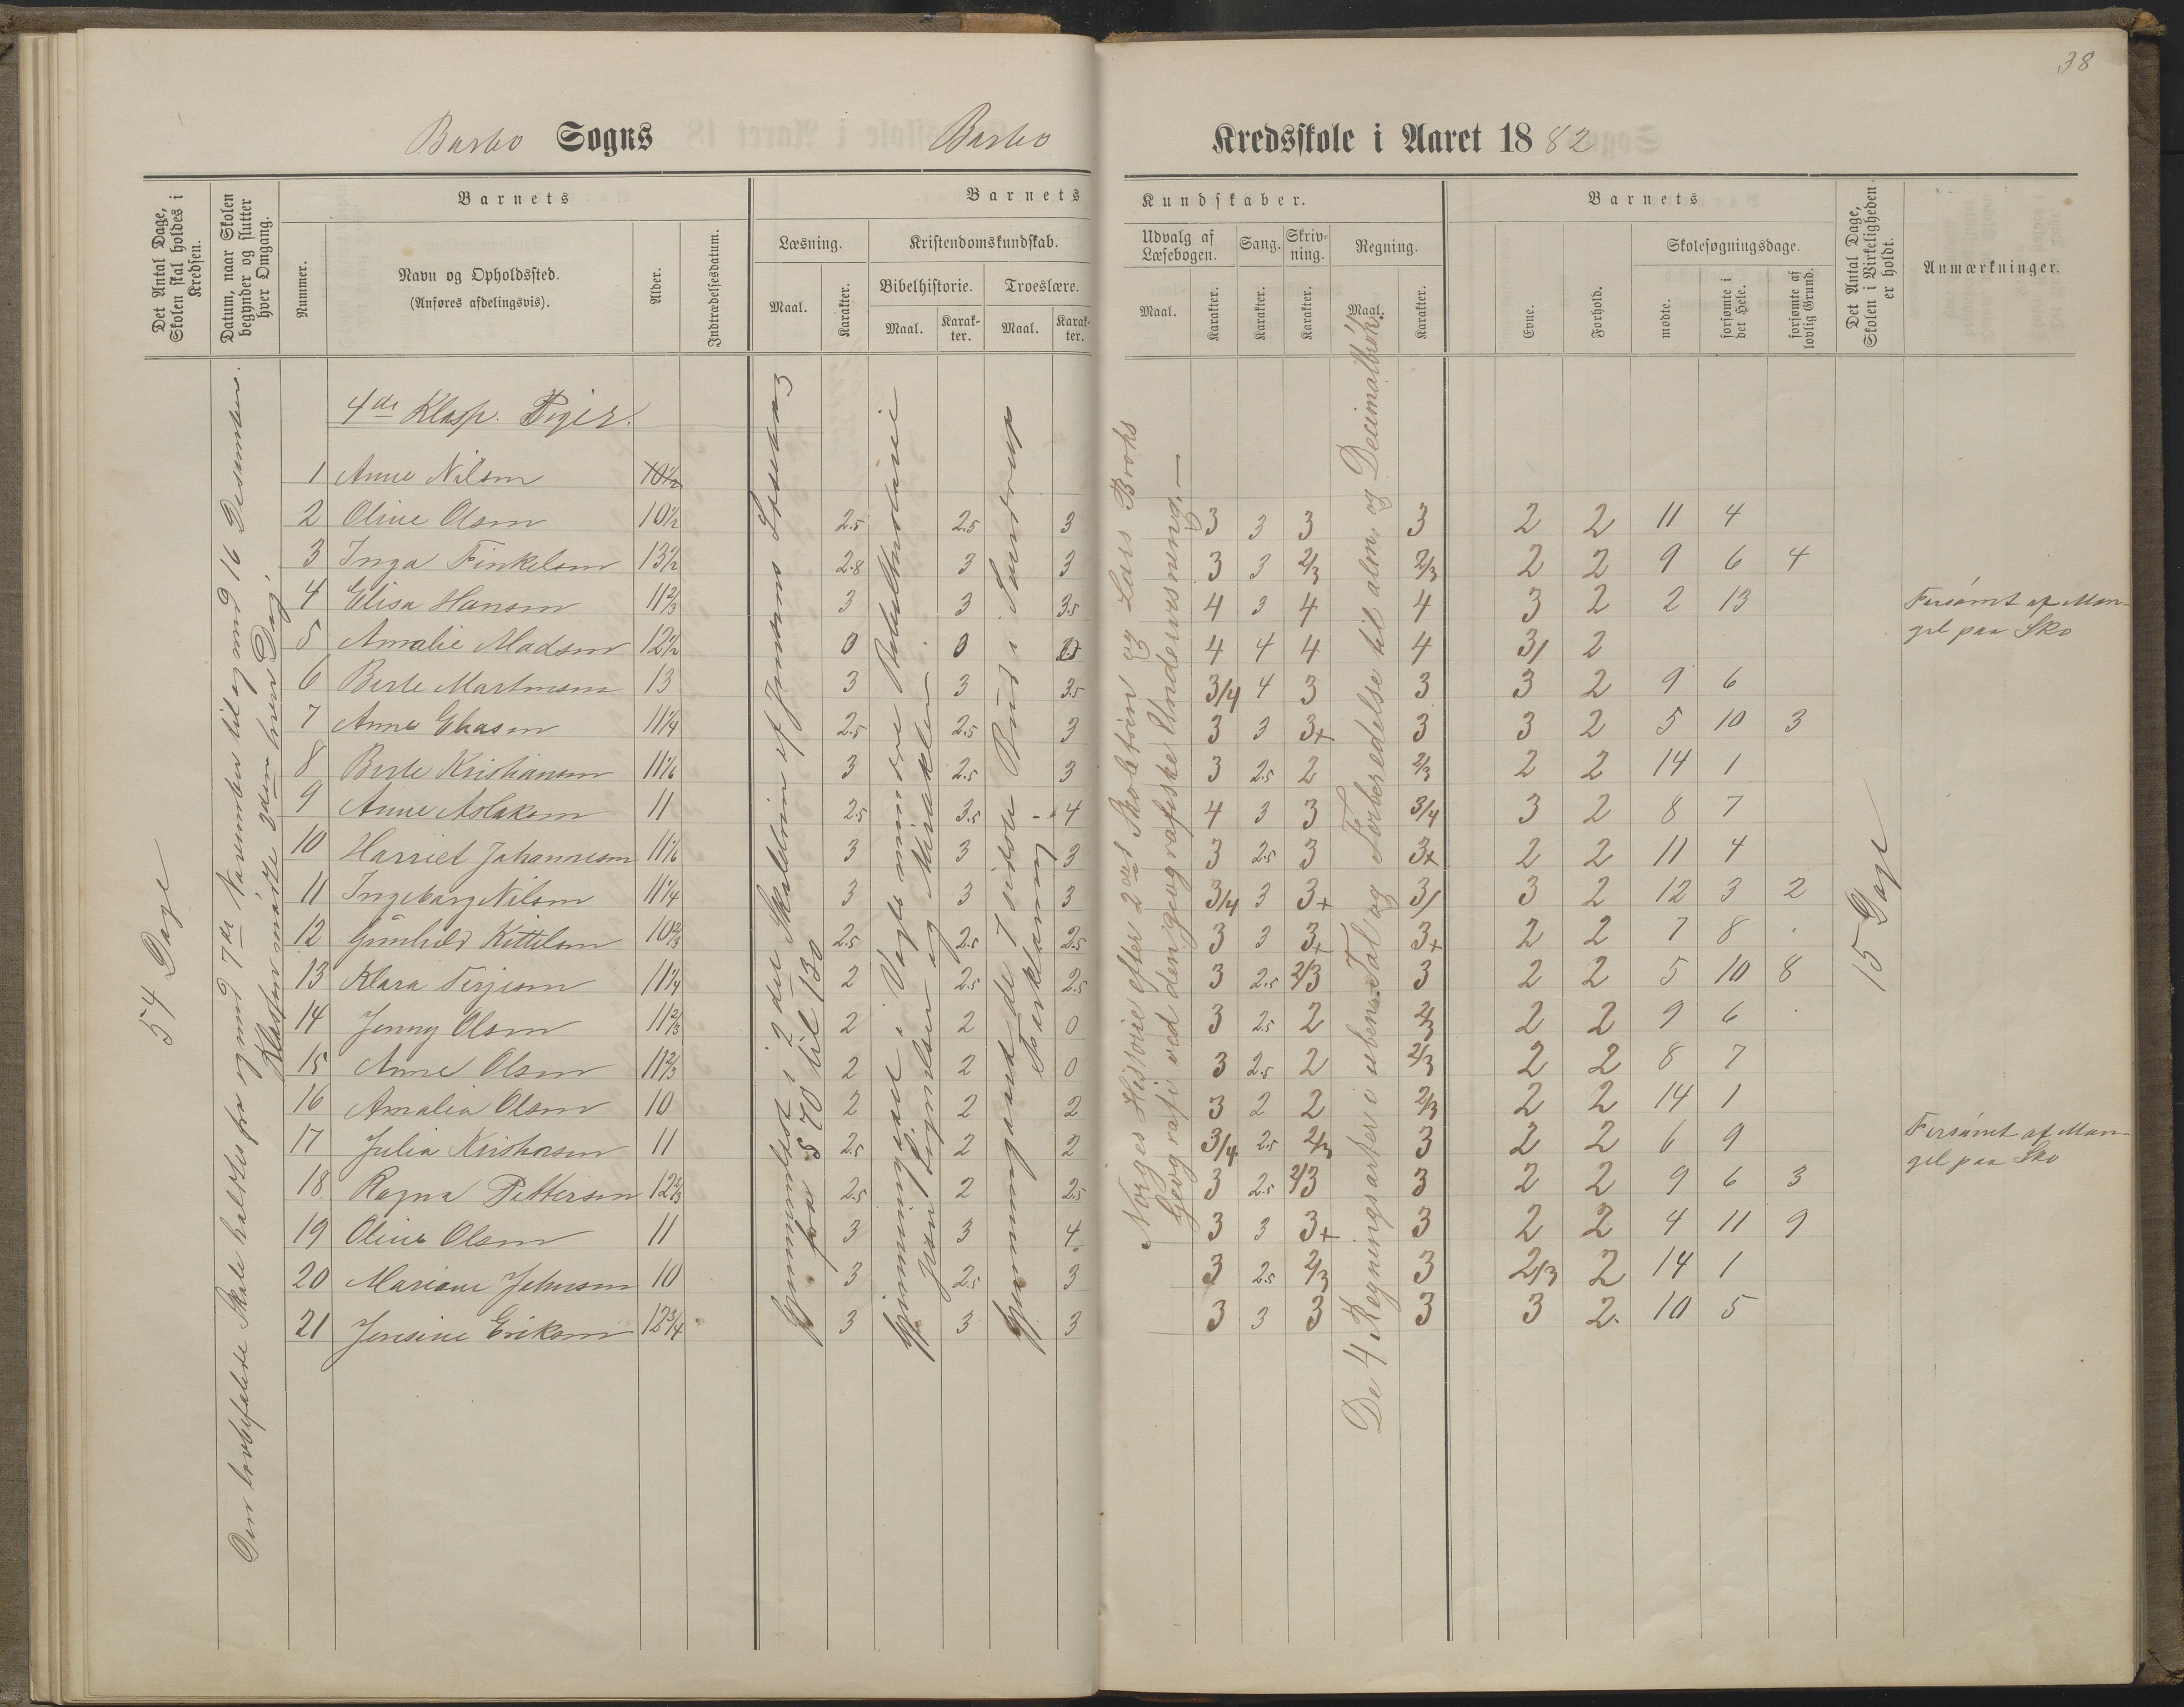 38
Barbo Sogns Barbo Kredsskole i Aaret 1882
Det Antal Dage, Skolen skal holdes i Kredsen.
Datum, naar Skolen begynder og slutter hver Omgang.
Barnets
Nummer.
Navn og Opholdssted.
(Anføres afdelingsvis).
Alder.
Indtrædelsesdatum.
Barnets Kundskaber.
Læsning.
Maal.
Karakter.
Kristendomskundskab.
Bibelhistorie.
Maal.
Karakter.
Troeslære.
Maal.
Karakter.
Udvalg af Læsebogen.
Maal.
Karakter.
Sang.
Karakter.
Skrivning.
Karakter.
Regning.
Maal.
Karakter.
Barnets
Evne.
Forhold.
Skolesøgningsdage.
mødte.
forsømte i det Hele.
forsømte af lovlig Grund.
Det Antal Dage, Skolen i Virkeligheden er holdt.
Anmærkninger.
54 Dage
Den lovbefalede Skole holdtes fra og med 7de November til og med 16 Desember.
Klassen mødte 3den hver Dag.
4de Klasse. Piger.
Gjennemlæst i 2den Skoletrin af Jensens Læsebog
fra S 70 til 130
Gjennemgaaet i Vogts mindre Bibelhistorie
Norges Historie efter 2det Skoletrin og Lars Broks
Geografi ved den geografiske Undervisning.—
De 4 Regningsarter i ubenævnte Tal og Forberedelse til alm. og Decimalbrøk.
1 Anne Nilsen 10½
2 Oline Olsen 10½ 2.5 2.5 3 3 3 3 3 2 2 11 4
3 Inga Finkelsen 13½ 2.8 3 3 3 3 2/3 2/3 2 2 9 6 4
4 Elisa Hansen 11⅔ 3 3 3.5 4 3 4 4 3 2 2 13 Forsømt af Man-
gel paa Sko
5 Amalie Madsen 12½ 0 0 0 4 4 4 4 3/ 2
6 Berte Martinsen 13 3 3 3.5 3/4 4 3 3 3 2 9 6
7 Anne Eliasen 11¼ 2.5 2.5 3 3 3 3+ 3 3 2 5 10 3
8 Berte Kristiansen 11⅙ 3 2.5 3 3 2.5 2 2/3 2 2 14 1
9 Anne Aslaksen 11 2.5 3.5 4 4 3 3 3/4 3 2 8 7
10 Harriet Johannesen 11⅙ 3 3 3 3 2.5 3 3+ 2 2 11 4
11 Ingeborg Nilsen 11¼ 3 3 3 3/4 3 3+ 3/ 3 2 12 3 2
12 Gunhild Kittelsen 10⅔ 2.5 2.5 2.5 3 3 3+ 3+ 2 2 7 8
13 Klara Terjesen 11¼ 2 2.5 2.5 3 2.5 2/3 3 2 2 5 10 8
14 Jenny Olsen 11⅔ 2 2 0 3 2.5 2 2/3 2 2 9 6
15 Anne Olsen 11⅔ 2 2 0 3 2.5 2 2/3 2 2 8 7
16 Amalia Olsen 10 2 2 2 3 2 2 2/3 2 2 14 1
17 Julia Kristiansen 11 2.5 2 2 3/4 2.5 2/3 3 2 2 6 9 Forsømt af Man-
gel paa Sko
18 Ragna Pettersen 12⅔ 2.5 2 2.5 3 2.5 2/3 3 2 2 9 6 3
19 Oline Olsen 11 3 3 4 3 3 3+ 3 2 2 4 11 9
20 Mariane Johnsen 10 3 2.5 3 3 2.5 2/3 3 2/3 2 14 1
21 Jensine Eriksen 12¾ 3 3 3 3 3 3 3 3 2 10 5
15 Dage